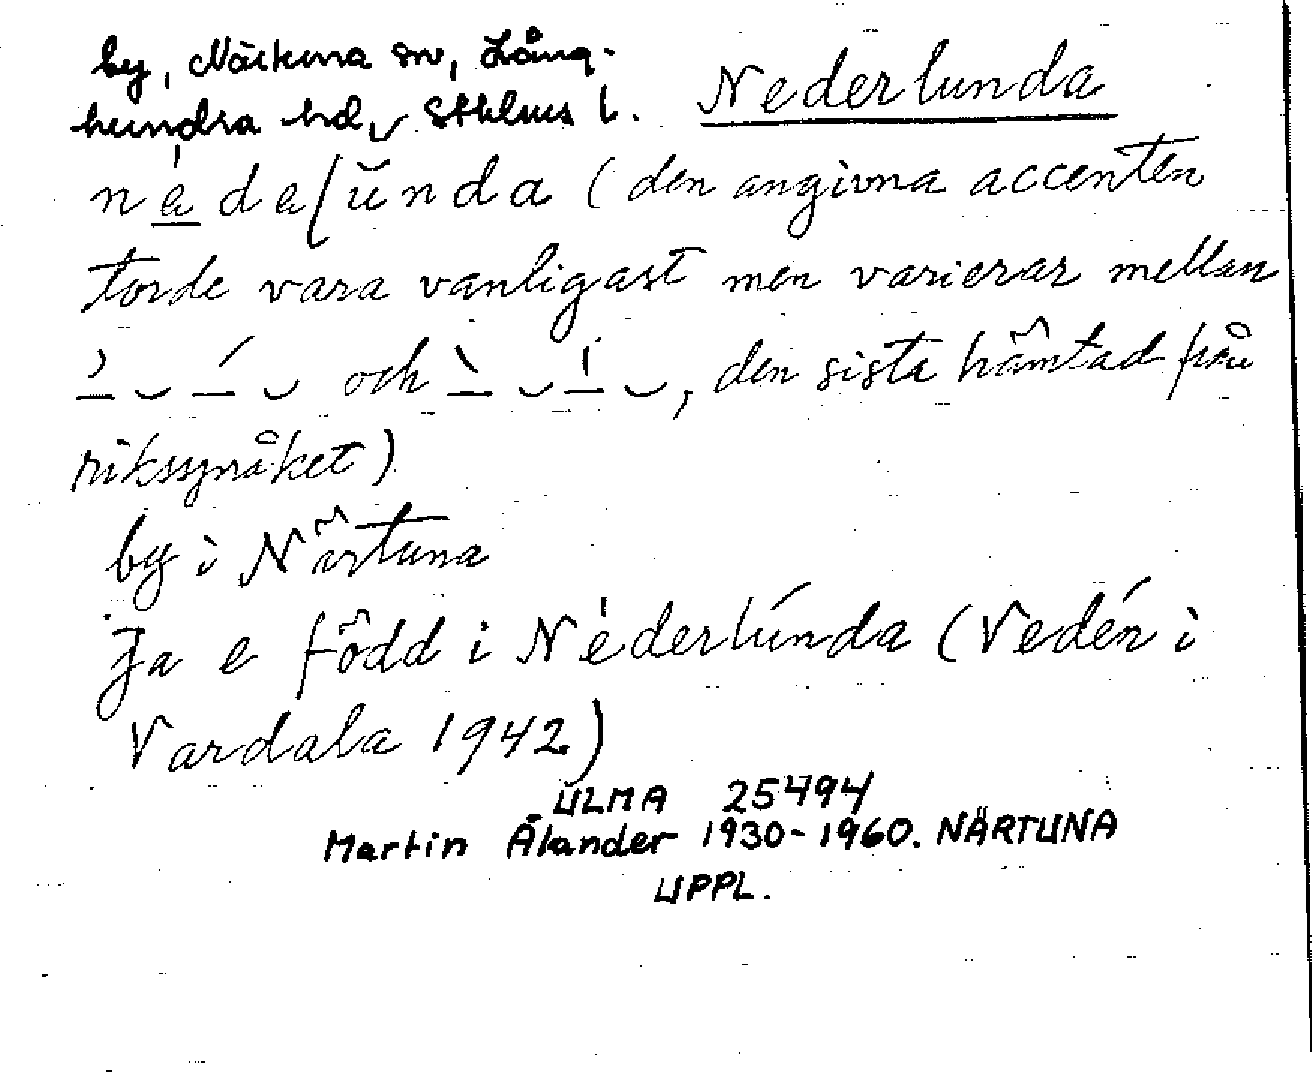 by, Närtuna sn, Lång-
hundra hd, Sthlms l.
Nederlunda
nedeſŭnda (den angivna accenten
torde vara vanligast men varierar mellan
och , den sista hämtad från
riksspråket)
by i Närtuna
Ja e född i Néderlúnda (Vedén i
Vardala 1942)
ULMA 25494
Martin Ålander 1930-1960. NÄRTUNA
UPPL.